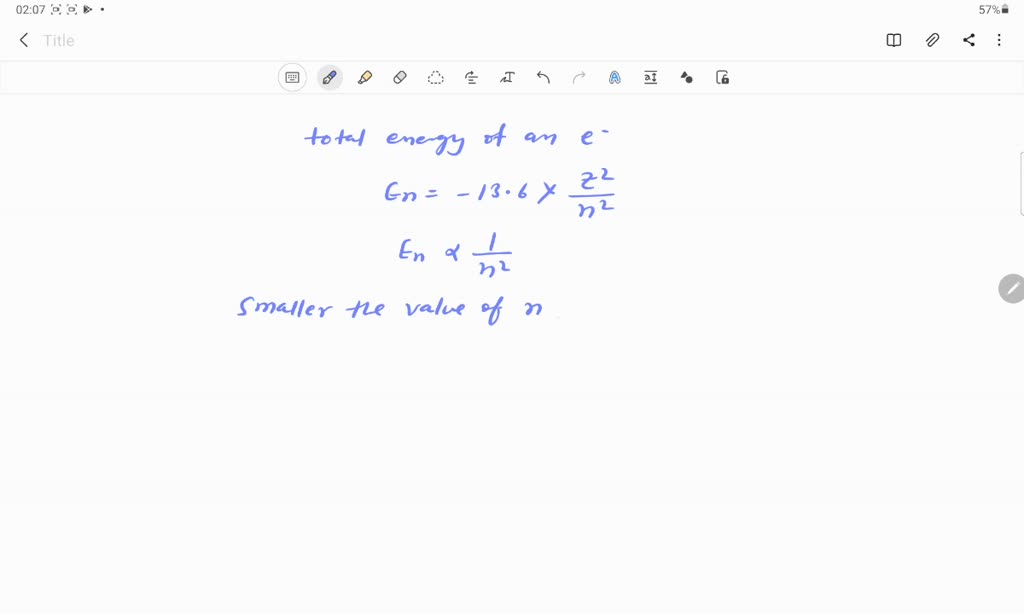 02:07
57%
Title
total energy of an e⁻
En = -13.6 × z²/n²
En ∝ 1/n²
Smaller the value of n